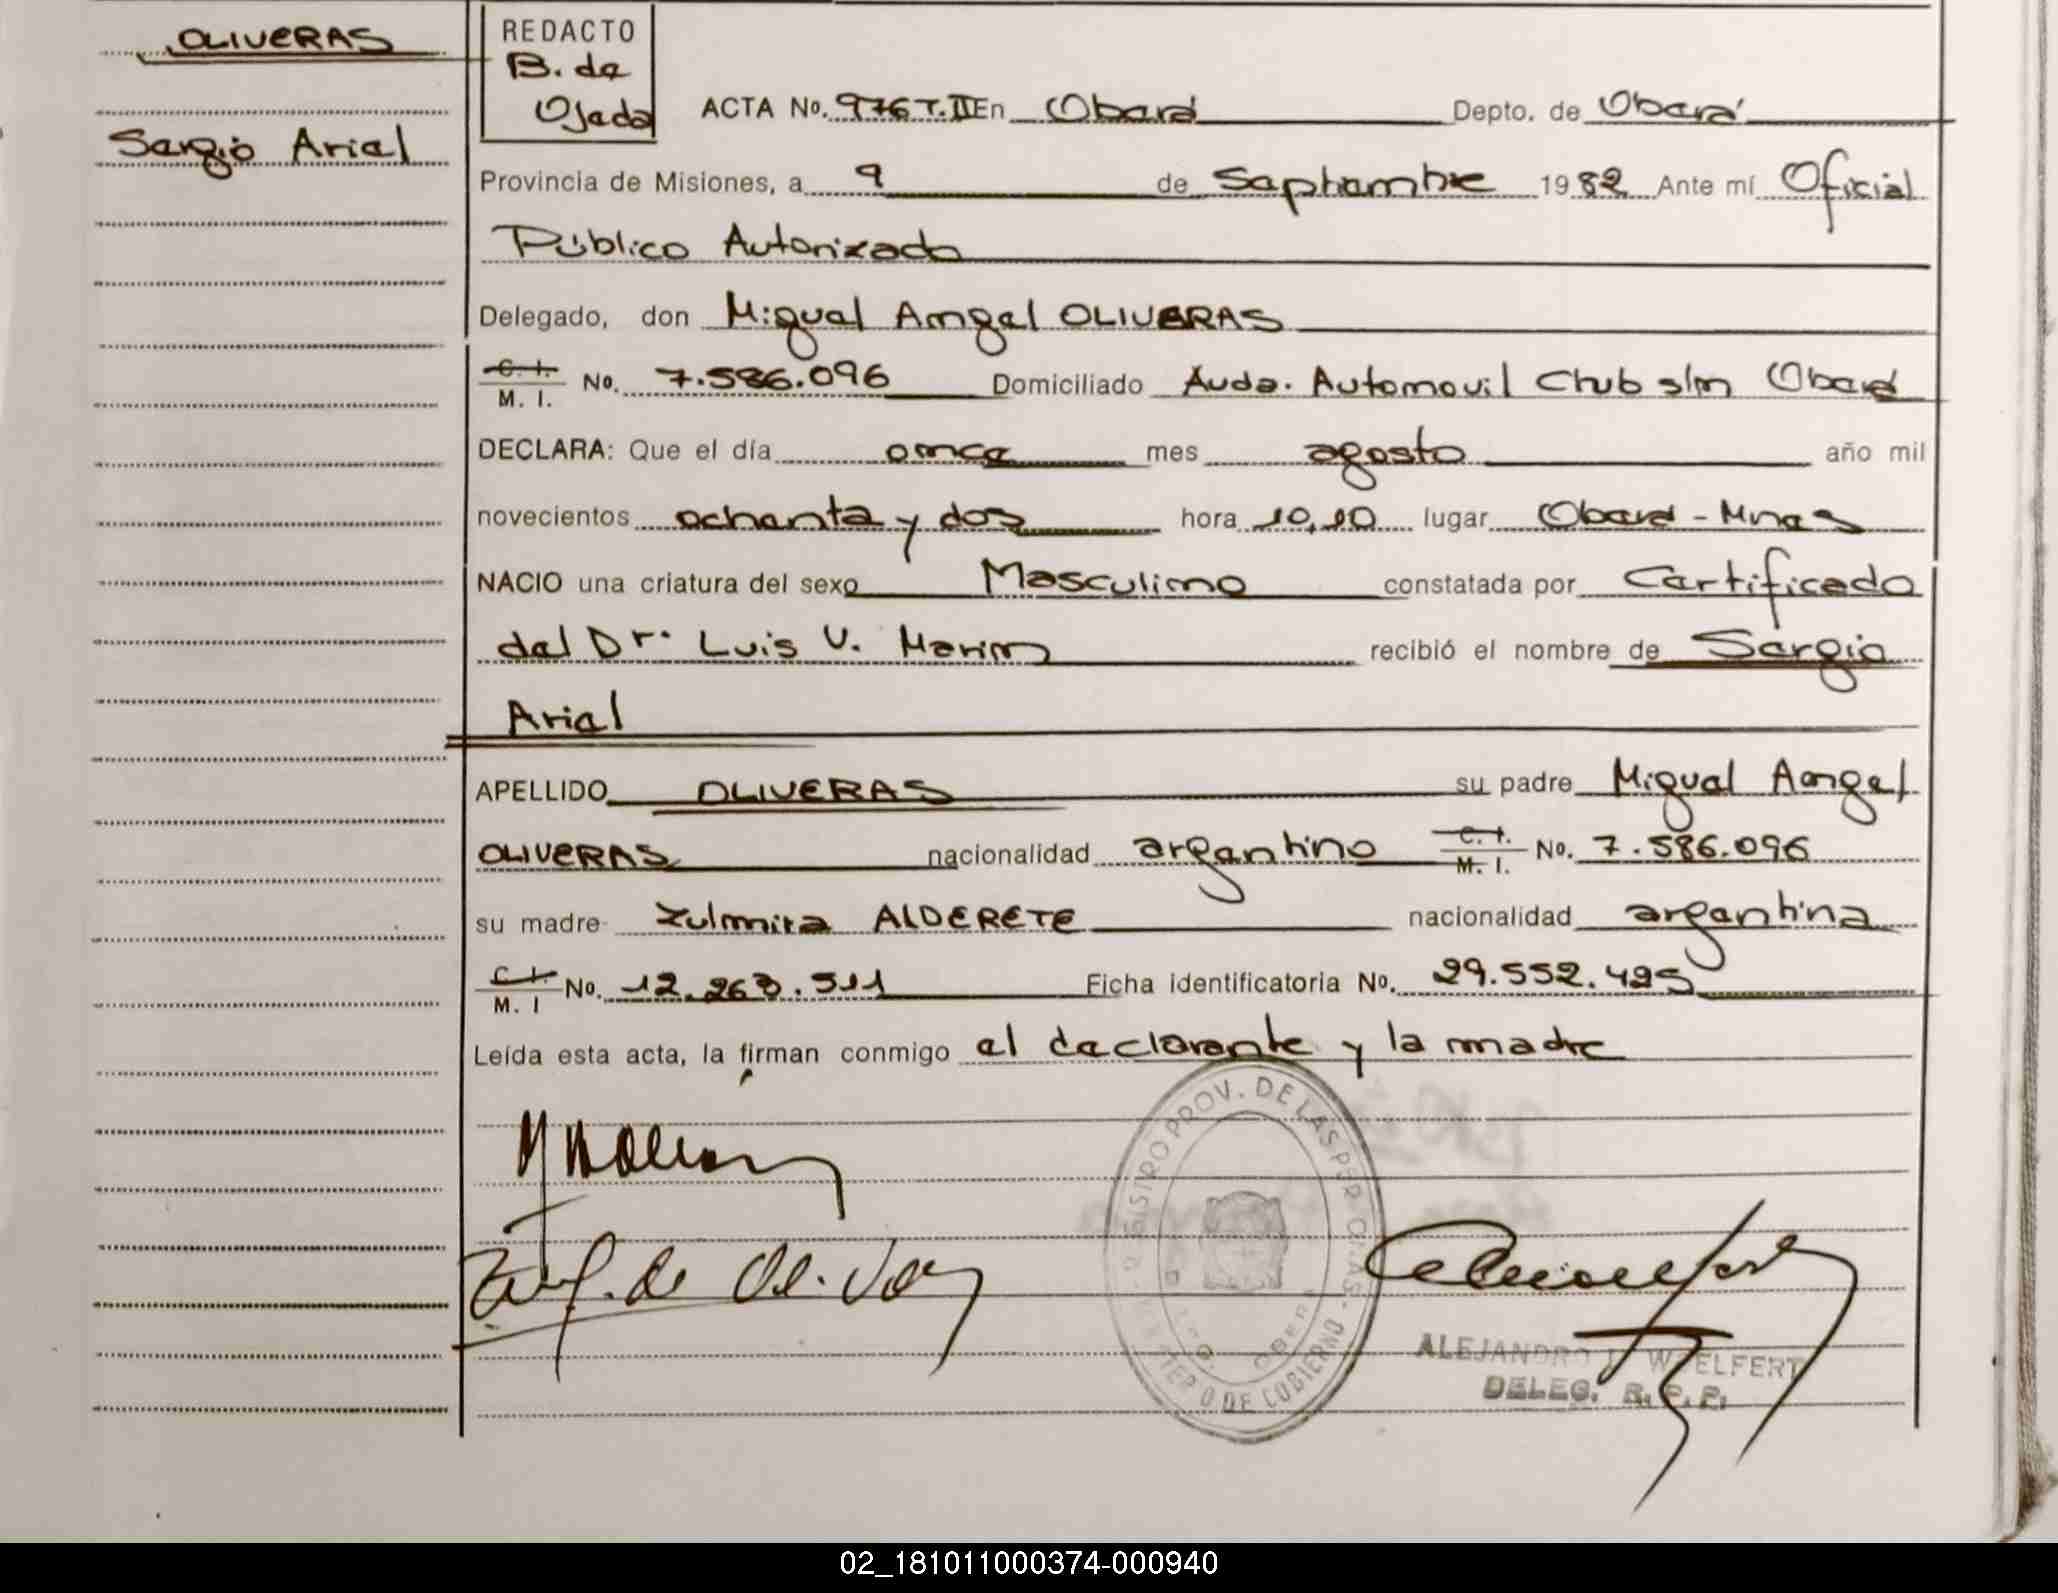 OLIVERAS
Sergio Ariel
REDACTO
B. de
Ojeda
ACTA No. 976 T. II En Oberá Depto. de Oberá
Provincia de Misiones, a 9 de Septiembre 1982 Ante mí Oficial
Público Autorizado
Delegado, don Miguel Angel OLIVERAS
C. I.
M. I. No. 7.586.096 Domiciliado Avda. Automovil Club s/n Oberá
DECLARA: Que el día once mes agosto año mil
novecientos ochenta y dos hora 10,10 lugar Oberá - Mnes
NACIO una criatura del sexo Masculino constatada por Certificado
del Dr. Luis V. Marin recibió el nombre de Sergio
Ariel
APELLIDO OLIVERAS su padre Miguel Angel
OLIVERAS nacionalidad argentino C. I. M. I. No. 7.586.096
su madre Zulmira ALDERETE nacionalidad argentina
C. I. M. I No. 12.263.511 Ficha identificatoria No. 29.552.425
Leída esta acta, la firman conmigo el declarante y la madre
PROV. DE LAS PERSONAS
OBERA
MINISTERIO DE GOBIERNO
ALEJANDRO WOELFERT
DELEG. R. P. P.
02_181011000374-000940